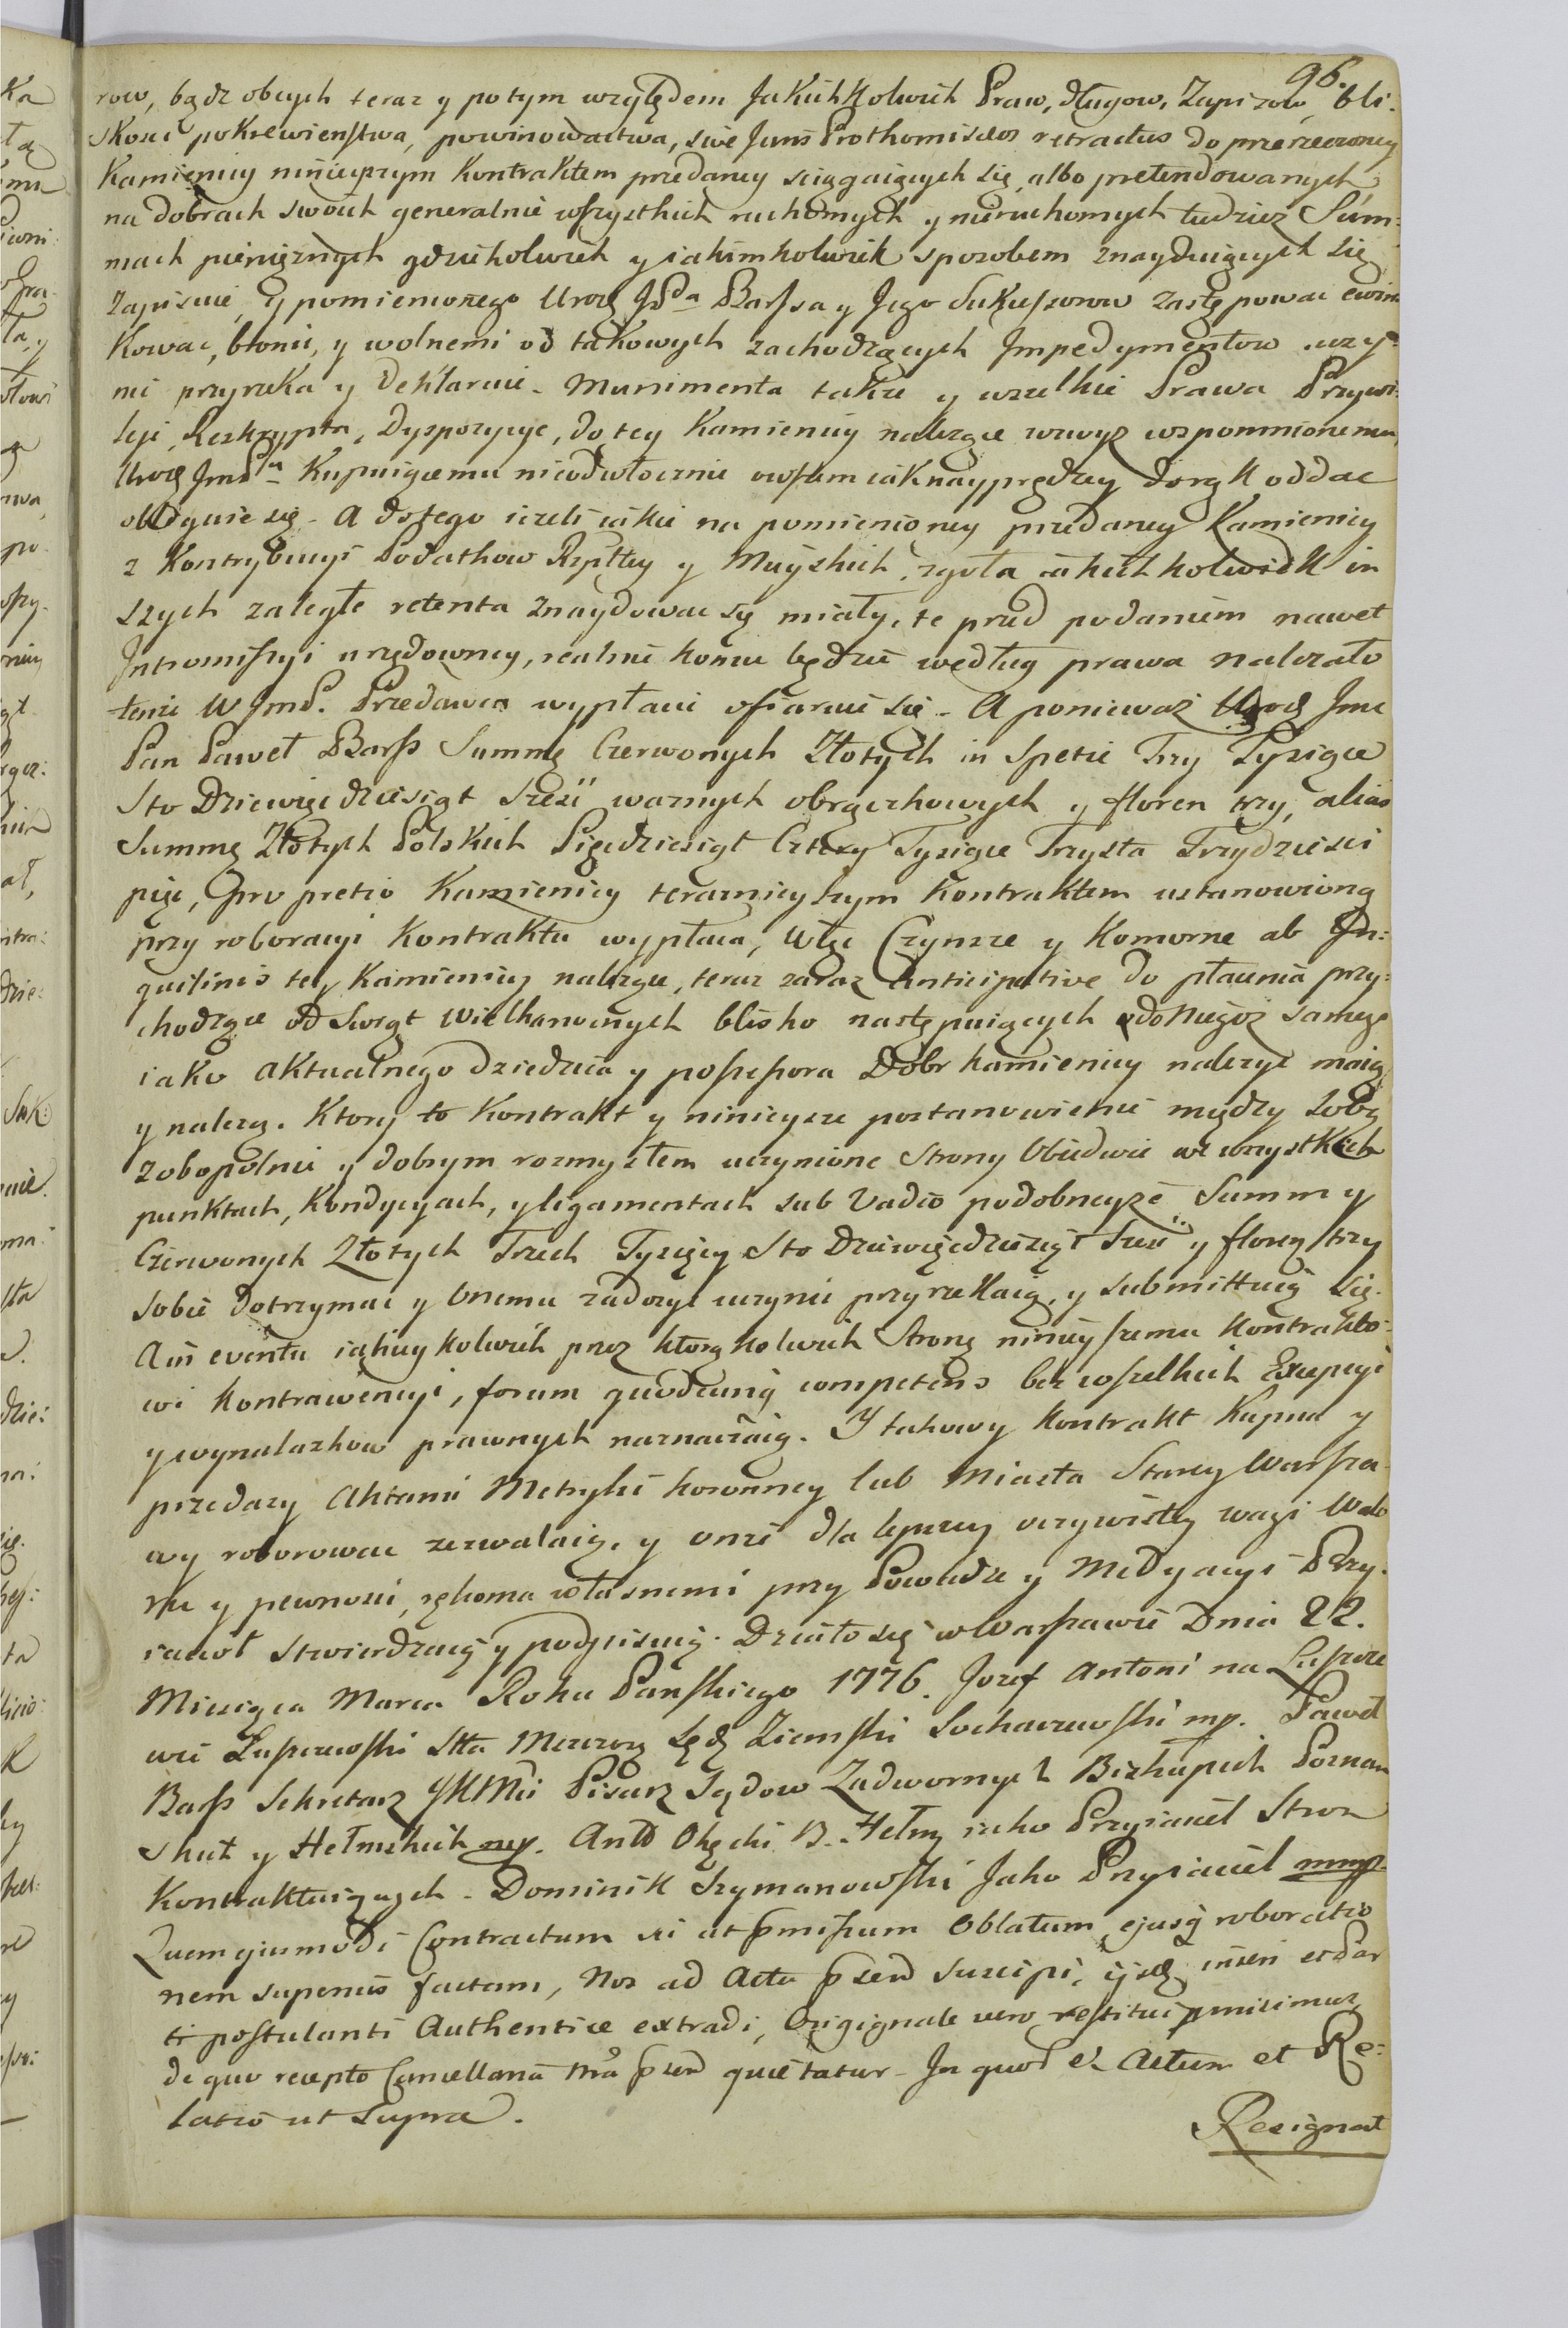 96.
row, bądz obcych teraz y potym względem Jakichkolwiek Praw, długow, Zapisow, bli:
skosci pokrewienstwa, powinowactwa, sive Juris Prothomiseos retractus do przerzeczoney
Kamienicy ninieyszym Kontraktem przedaney sciągaiących się, albo pretendowanych
na dobrach swoich generalnie wszystkich ruchomych y nieruchomych tudziez Sum:
mach pieniężnych gdziekolwiek y iakimkolwiek sposobem znayduiących się
Zapisuie, y pomienionego Urodz JPda Barssa y Jego Sukcessorow zastępowac ewin
kowac, bronic, y wolnemi od takowych zachodzących Impedymentow uczy:
nic przyrzeka y deklaruie - Munimenta takze y wszelkie Prawa Przywi:
leje, Reskrypta, Dyspozycye, do tey Kamienicy nalezące wzwyz wspomnionemu
Urodz JmPu Kupuiącemu nieodwłocznie owszem iaknayprędzey do rąk oddac
obliguie się - A do tego iezeli iakie na pomienioney przedaney Kamienicy
z Kontrybucyi Podatkow Rzpltey y Mieyskich, zgoła iakichkolwiek in
szych zaległe retenta znaydowac się miały, te przed podaniem nawet
Intromissyi urzędowney, realnie komu będzie według prawa nalezało
tenze W JmP. Przedawca wypłacic ofiaruie się - A poniewaz Urodz Jmc
Pan Paweł Barss Summę Czerwonych Złotych in Specie Trzy Tysiące
Sto Dziewięcdziesiąt Szesc waznych obrączkowych y floren trzy, alias
Summę Złotych Polskich Pięcdziesiąt Cztery Tysiące Trzysta Trzydziesci
pięc, pro pretio Kamienicy teraznieyszym Kontraktem ustanowioną
przy roboracyi Kontraktu wypłaca, Więc Czynsze y Komorne ab In:
quilinis tey Kamienicy nalezące, teraz zaraz Anticipative do płacenia przy:
chodzące od Swiąt Wielkanocnych blisko następuiących do Niegoz samego
iako aktualnego dziedzica y possessora Dobr kamienicy nalezyc maią
y nalezą. Ktory to Kontrakt y ninieysze postanowienie między sobą
zobopolnie y dobrym rozmysłem uczynione Strony Obiedwie we wszystkich
punktach, Kondycyach, y ligamentach sub Vadio podobneyze Summy
Czerwonych Złotych Trzech Tysięcy Sto Dziewięcdziesiąt Szesc y floren trzy
sobie dotrzymac y onemu zadosyc uczynic przyrzekaią, y submittuią się.
A in eventu iakiey kolwiek przez ktorą kolwiek Stronę ninieyszemu Kontrakto:
wi Kontrawencyi, forum quodcunq competens bez wszelkich Excepcyi
y wynalazkow prawnych naznaczaią. Y takowy Kontrakt Kupna y
przedazy Aktami Metryki koronney lub Miasta Starey Warsza
wy roborowac zezwalaią, y onze dla lepszey oczywistey wagi walo
ru y pewnosci, rękoma własnemi przy Powadze y Medyacyi Przy:
iacioł stwierdzaią y podpisuią. Działo się w Warszawie Dnia 22.
Miesiąca Marca Roku Panskiego 1776. Jozef Antoni na Łuszcze
wie Łuszczewski Stta Mszczon Sędz Ziemski Sochaczewski mp. Paweł
Barss Sekretarz JKMci Pisarz Sądow Zadwornych Biskupich Poznan
skich y Hełmskich mp. Antd Okęcki B. Hełm iako Przyiaciel Stron
Kontraktuiących - Dominik Szymanowski Jako Przyiaciel mmp
Quem ejusmodi Contractum sic ut pmissum Oblatum, ejusq roboratio
nem superius factam, Nos ad Acta psend suscipi, ijsdz inseri et Par
ti postulanti Authentice extradi, Originale vero restitui pmisimus
de quo recepto Cancellaria Nra psend quietatur - In quod &. Actum et Re:
latio ut Supra.
Resignat